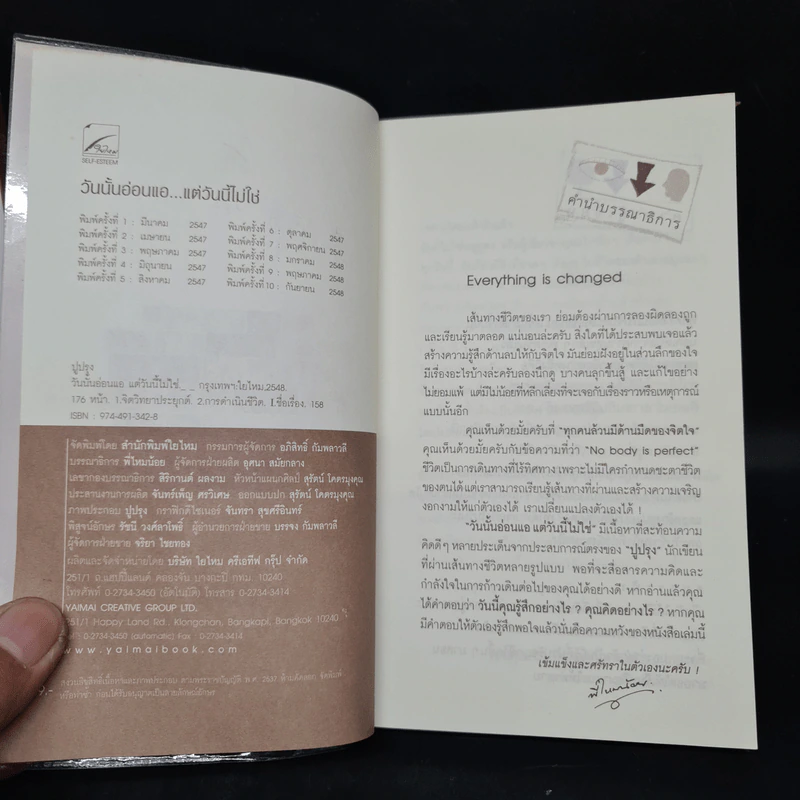 SELF-ESTEEM
วันนั้นอ่อนแอ...แต่วันนี้ไม่ใช่
พิมพ์ครั้งที่ 1 : มีนาคม 2547
พิมพ์ครั้งที่ 2 : เมษายน 2547
พิมพ์ครั้งที่ 3 : พฤษภาคม 2547
พิมพ์ครั้งที่ 4 : มิถุนายน 2547
พิมพ์ครั้งที่ 5 : สิงหาคม 2547
พิมพ์ครั้งที่ 6 : ตุลาคม 2547
พิมพ์ครั้งที่ 7 : พฤศจิกายน 2547
พิมพ์ครั้งที่ 8 : มกราคม 2548
พิมพ์ครั้งที่ 9 : พฤษภาคม 2548
พิมพ์ครั้งที่ 10 : กันยายน 2548
ปูปรุง
วันนั้นอ่อนแอ แต่วันนี้ไม่ใช่_ _ กรุงเทพฯ:ใยไหม,2548.
176 หน้า. 1.จิตวิทยาประยุกต์. 2.การดำเนินชีวิต. I.ชื่อเรื่อง. 158
ISBN : 974-491-342-8
จัดพิมพ์โดย สำนักพิมพ์ใยไหม กรรมการผู้จัดการ อภิสิทธิ์ กัมพลาวลี
บรรณาธิการ พี่ไหมน้อย ผู้จัดการฝ่ายผลิต อุศนา สมัยกลาง
เลขากองบรรณาธิการ สิริกานต์ ผลงาม หัวหน้าแผนกศิลป์ สุรัตน์ โคตรมุงคุณ
ประสานงานการผลิต จันทร์เพ็ญ ศรวิเศษ ออกแบบปก สุรัตน์ โคตรมุงคุณ
ภาพประกอบ ปูปรุง กราฟิกดีไซเนอร์ จันทรา สุขศรีอินทร์
พิสูจน์อักษร รัชนี วงศ์ลาโพธิ์ ผู้อำนวยการฝ่ายขาย บรรจง กัมพลาวลี
ผู้จัดการฝ่ายขาย จริยา ไชยทอง
ผลิตและจัดจำหน่ายโดย บริษัท ใยไหม ครีเอทีฟ กรุ๊ป จำกัด
251/1 ถ.แฮปปี้แลนด์ คลองจั่น บางกะปิ กทม. 10240
โทรศัพท์ 0-2734-3450 (อัตโนมัติ) โทรสาร 0-2734-3414
YAIMAI CREATIVE GROUP LTD.
251/1 Happy Land Rd., Klongchan, Bangkapi, Bangkok 10240
0-2734-3450 (automatic) Fax 0-2734-3414
www.yaimaibook.com
สงวนลิขสิทธิ์เนื้อหาและภาพประกอบ ตามพระราชบัญญัติ พ.ศ. 2537 ห้ามคัดลอก จัดพิมพ์
หรือทำซ้ำ ก่อนได้รับอนุญาตเป็นลายลักษณ์อักษร
คำนำบรรณาธิการ
Everything is changed
เส้นทางชีวิตของเรา ย่อมต้องผ่านการลองผิดลองถูก
และเรียนรู้มาตลอด แน่นอนล่ะครับ สิ่งใดที่ได้ประสบพบเจอแล้ว
สร้างความรู้สึกด้านลบให้กับจิตใจ มันย่อมฝังอยู่ในส่วนลึกของใจ
มีเรื่องอะไรบ้างล่ะครับลองนึกดู บางคนลุกขึ้นสู้ และแก้ไขอย่าง
ไม่ยอมแพ้ แต่มีไม่น้อยที่หลีกเลี่ยงที่จะเจอกับเรื่องราวหรือเหตุการณ์
แบบนั้นอีก
คุณเห็นด้วยมั้ยครับที่ “ทุกคนล้วนมีด้านมืดของจิตใจ”
คุณเห็นด้วยมั้ยครับกับข้อความที่ว่า “No body is perfect”
ชีวิตเป็นการเดินทางที่ไร้ทิศทาง เพราะไม่มีใครกำหนดชะตาชีวิต
ของตนได้ แต่เราสามารถเรียนรู้เส้นทางที่ผ่านและสร้างความเจริญ
งอกงามให้แก่ตัวเองได้ เราเปลี่ยนแปลงตัวเองได้ !
“วันนั้นอ่อนแอ แต่วันนี้ไม่ใช่” มีเนื้อหาที่สะท้อนความ
คิดดีๆ หลายประเด็นจากประสบการณ์ตรงของ “ปูปรุง” นักเขียน
ที่ผ่านเส้นทางชีวิตหลายรูปแบบ พอที่จะสื่อสารความคิดและ
กำลังใจในการก้าวเดินต่อไปของคุณได้อย่างดี หากอ่านแล้วคุณ
ได้คำตอบว่า วันนี้คุณรู้สึกอย่างไร ? คุณคิดอย่างไร ? หากคุณ
มีคำตอบให้ตัวเองรู้สึกพอใจแล้วนั่นคือความหวังของหนังสือเล่มนี้
เข้มแข็งและศรัทธาในตัวเองนะครับ !
พี่ไหมน้อย.